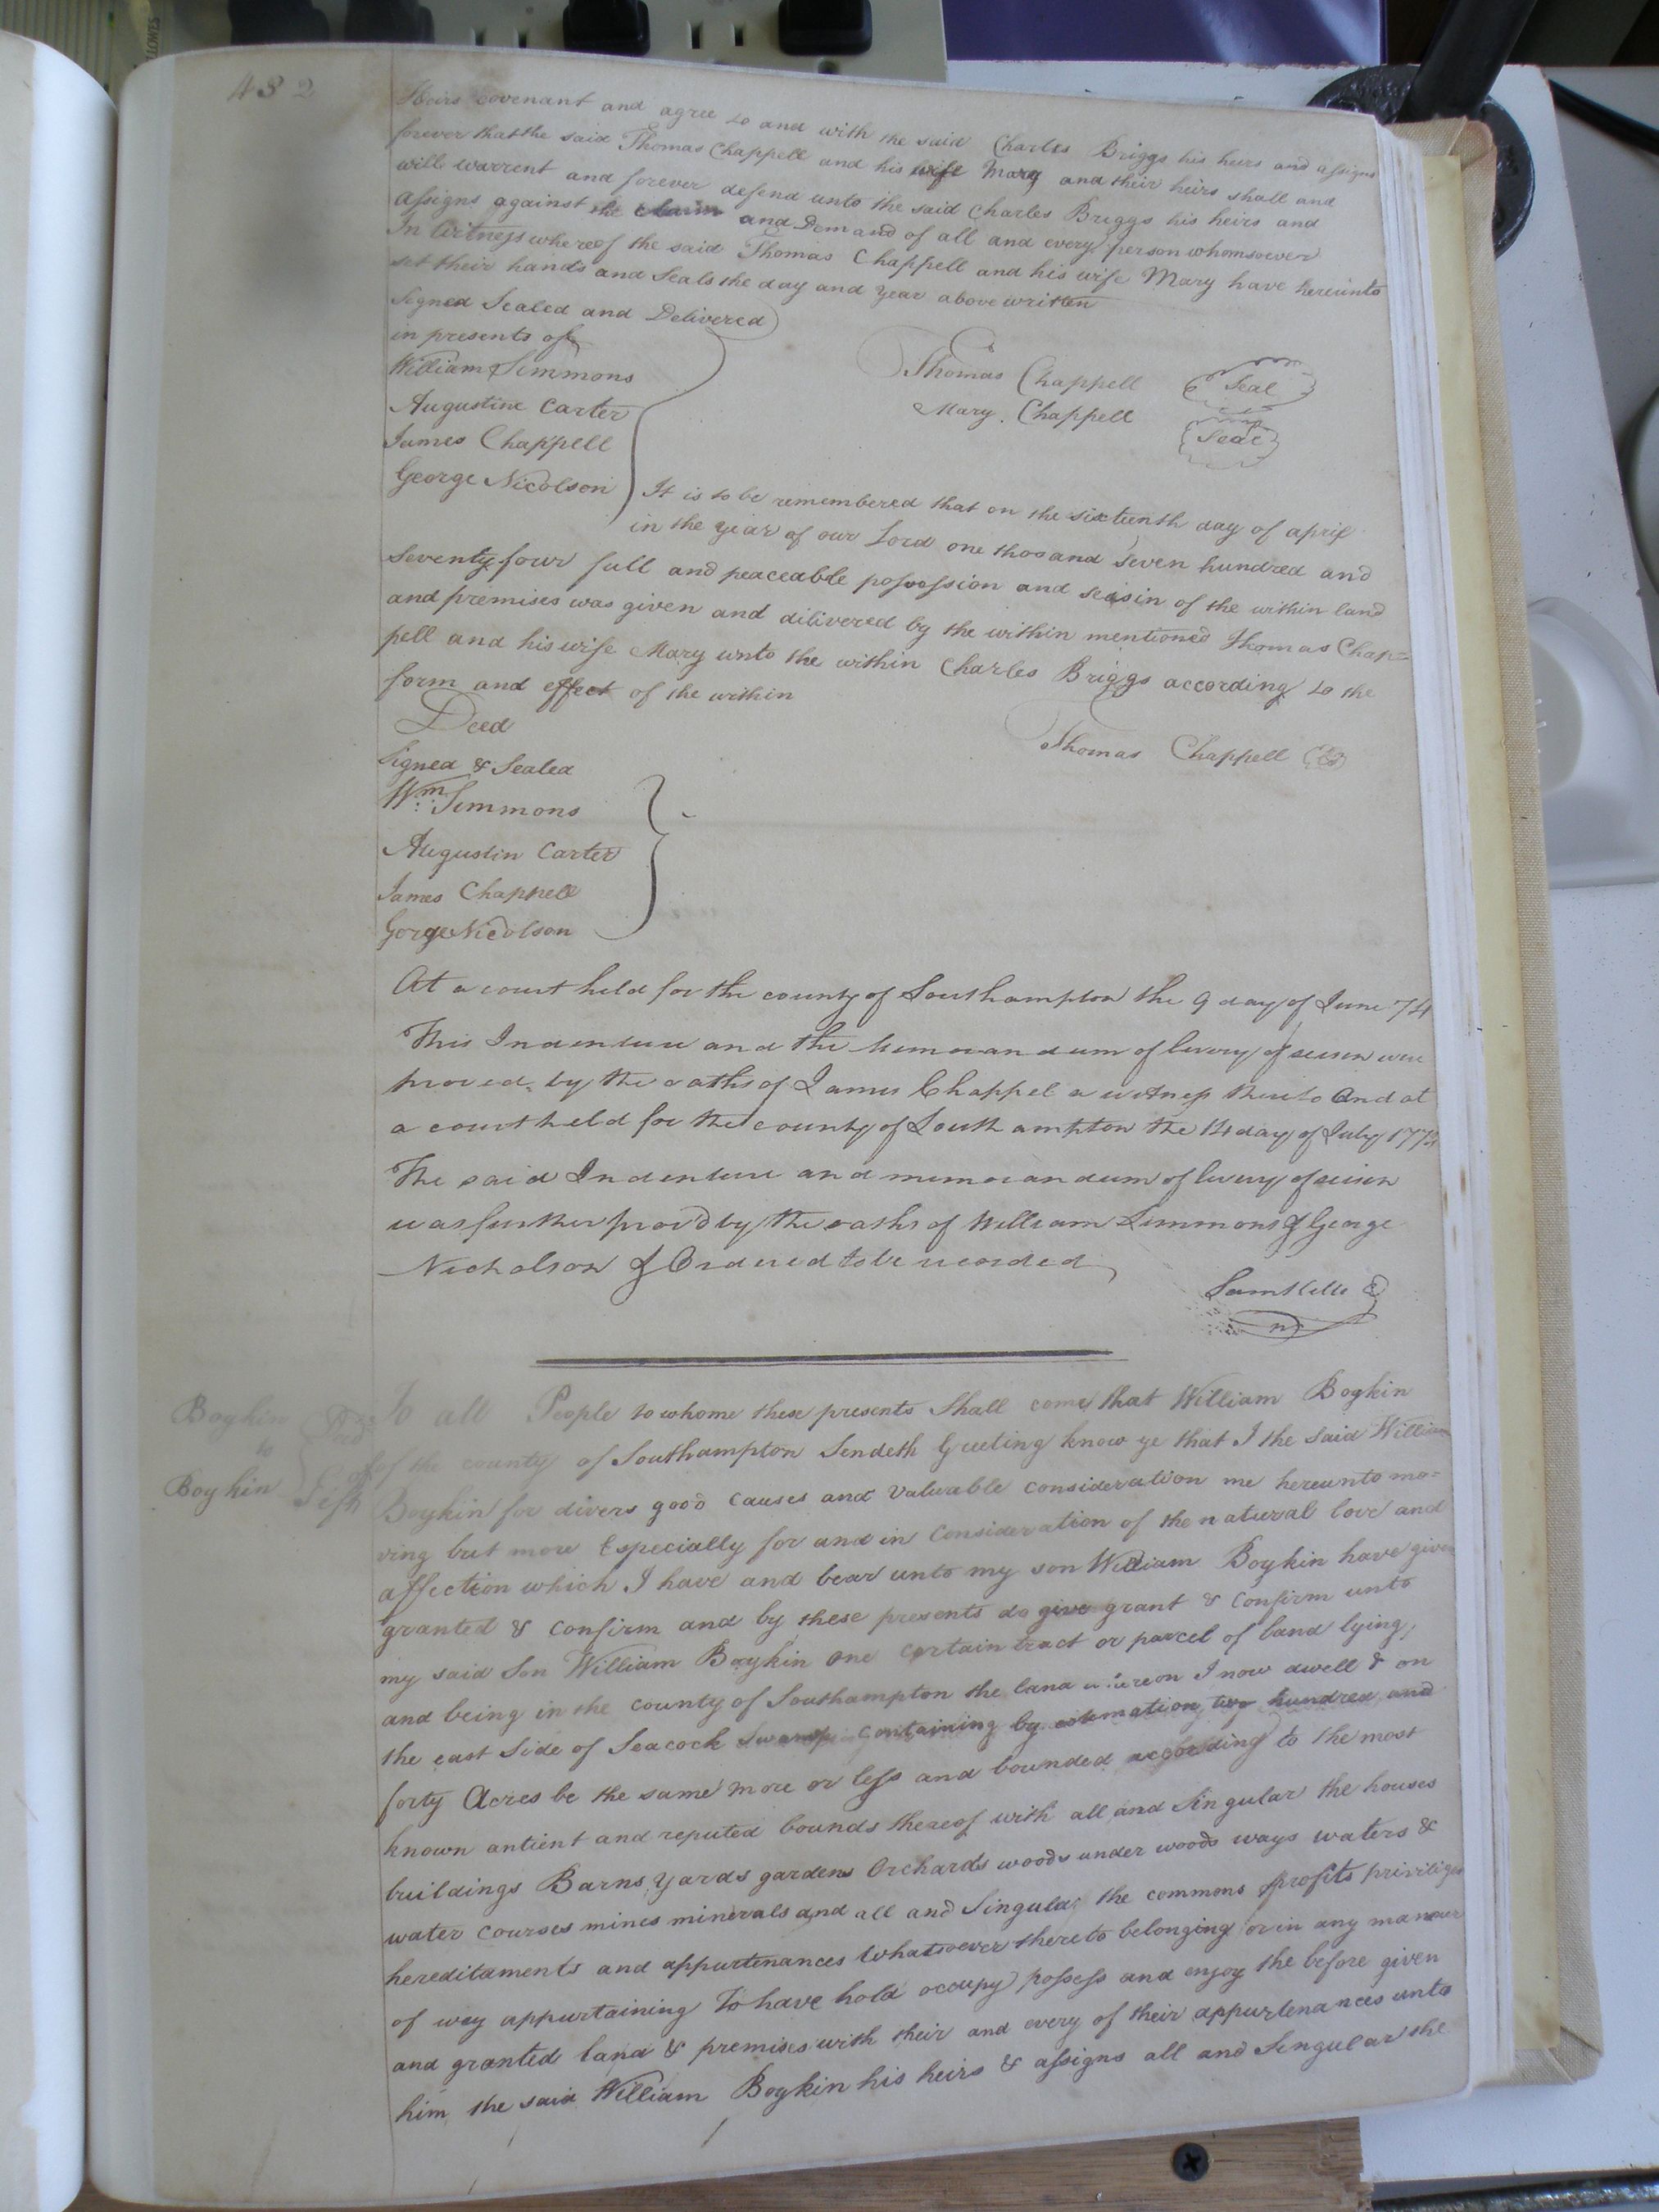 432
Heirs covenant and agree to and with the said Charles Briggs his heirs and assigns
forever that the said Thomas Chappell and his wife Mary and their heirs shall and
will warrent and forever defend unto the said Charles Briggs his heirs and
assigns against the claim and Demand of all and every person whomsoever
In Witness whereof the said Thomas Chappell and his wife Mary have hereunto
set their hands and Seals the day and year above written
Signed Sealed and Delivered
in presents of
William Simmons
Thomas Chappell Seal
Augustine Carter
Mary Chappell Seal
James Chappell
George Nicolson
It is to be remembered that on the sixteenth day of april
in the year of our Lord one thosand seven hundred and
Seventy four full and peaceable possession and seisin of the within land
and premises was given and dilivered by the within mentioned Thomas Chap=
pell and his wife Mary unto the within Charles Briggs according to the
form and effect of the within
Deed
Thomas Chappell
Signed & Sealed
Wm Simmons
Augustin Carter
James Chappell
Gorge Nicolson
At a court held for the county of Southampton the 9 day of June 74
This Indenture and the Memorandum of livery of seisen were
proved by the oaths of James Chappel a witness thereto And at
a court held for the county of Southampton the 14 day of July 1774
The said Indenture and memorandum of livery of seisen
was further prov'd by the oaths of William Simmons & George
Nicholson & Ordered to be recorded
Boykin
to
Boykin
Deed
of
Gift
To all People to whome these presents Shall come that William Boykin
of the county of Southampton Sendeth Greeting know ye that I the said William
Boykin for divers good Causes and Valuable consideration me hereunto mo=
ving but more Especially for and in Consideration of the natural love and
affection which I have and bear unto my son William Boykin have given
granted & confirm and by these presents do give grant & Confirm unto
my said Son William Boykin One certain tract or parcel of land lying
and being in the county of Southampton the land whereon I now dwell & on
the east Side of Seacock Swamp containing by estemation two hundred and
forty Acres be the same more or less and bounded according to the most
known antient and reputed bounds thereof with all and Singular the houses
buildings Barns yards gardens Orchards woods under woods ways waters &
water courses mines minerals and all and Singular the commons profits priviliges
hereditaments and appurtenances Whatsoever thereto belonging or in any manner
of way appurtaining To have hold occupy possess and enjoy the before given
and granted land & premises with their and every of their appurtenances unto
him the said William Boykin his heirs & assigns all and Singular the